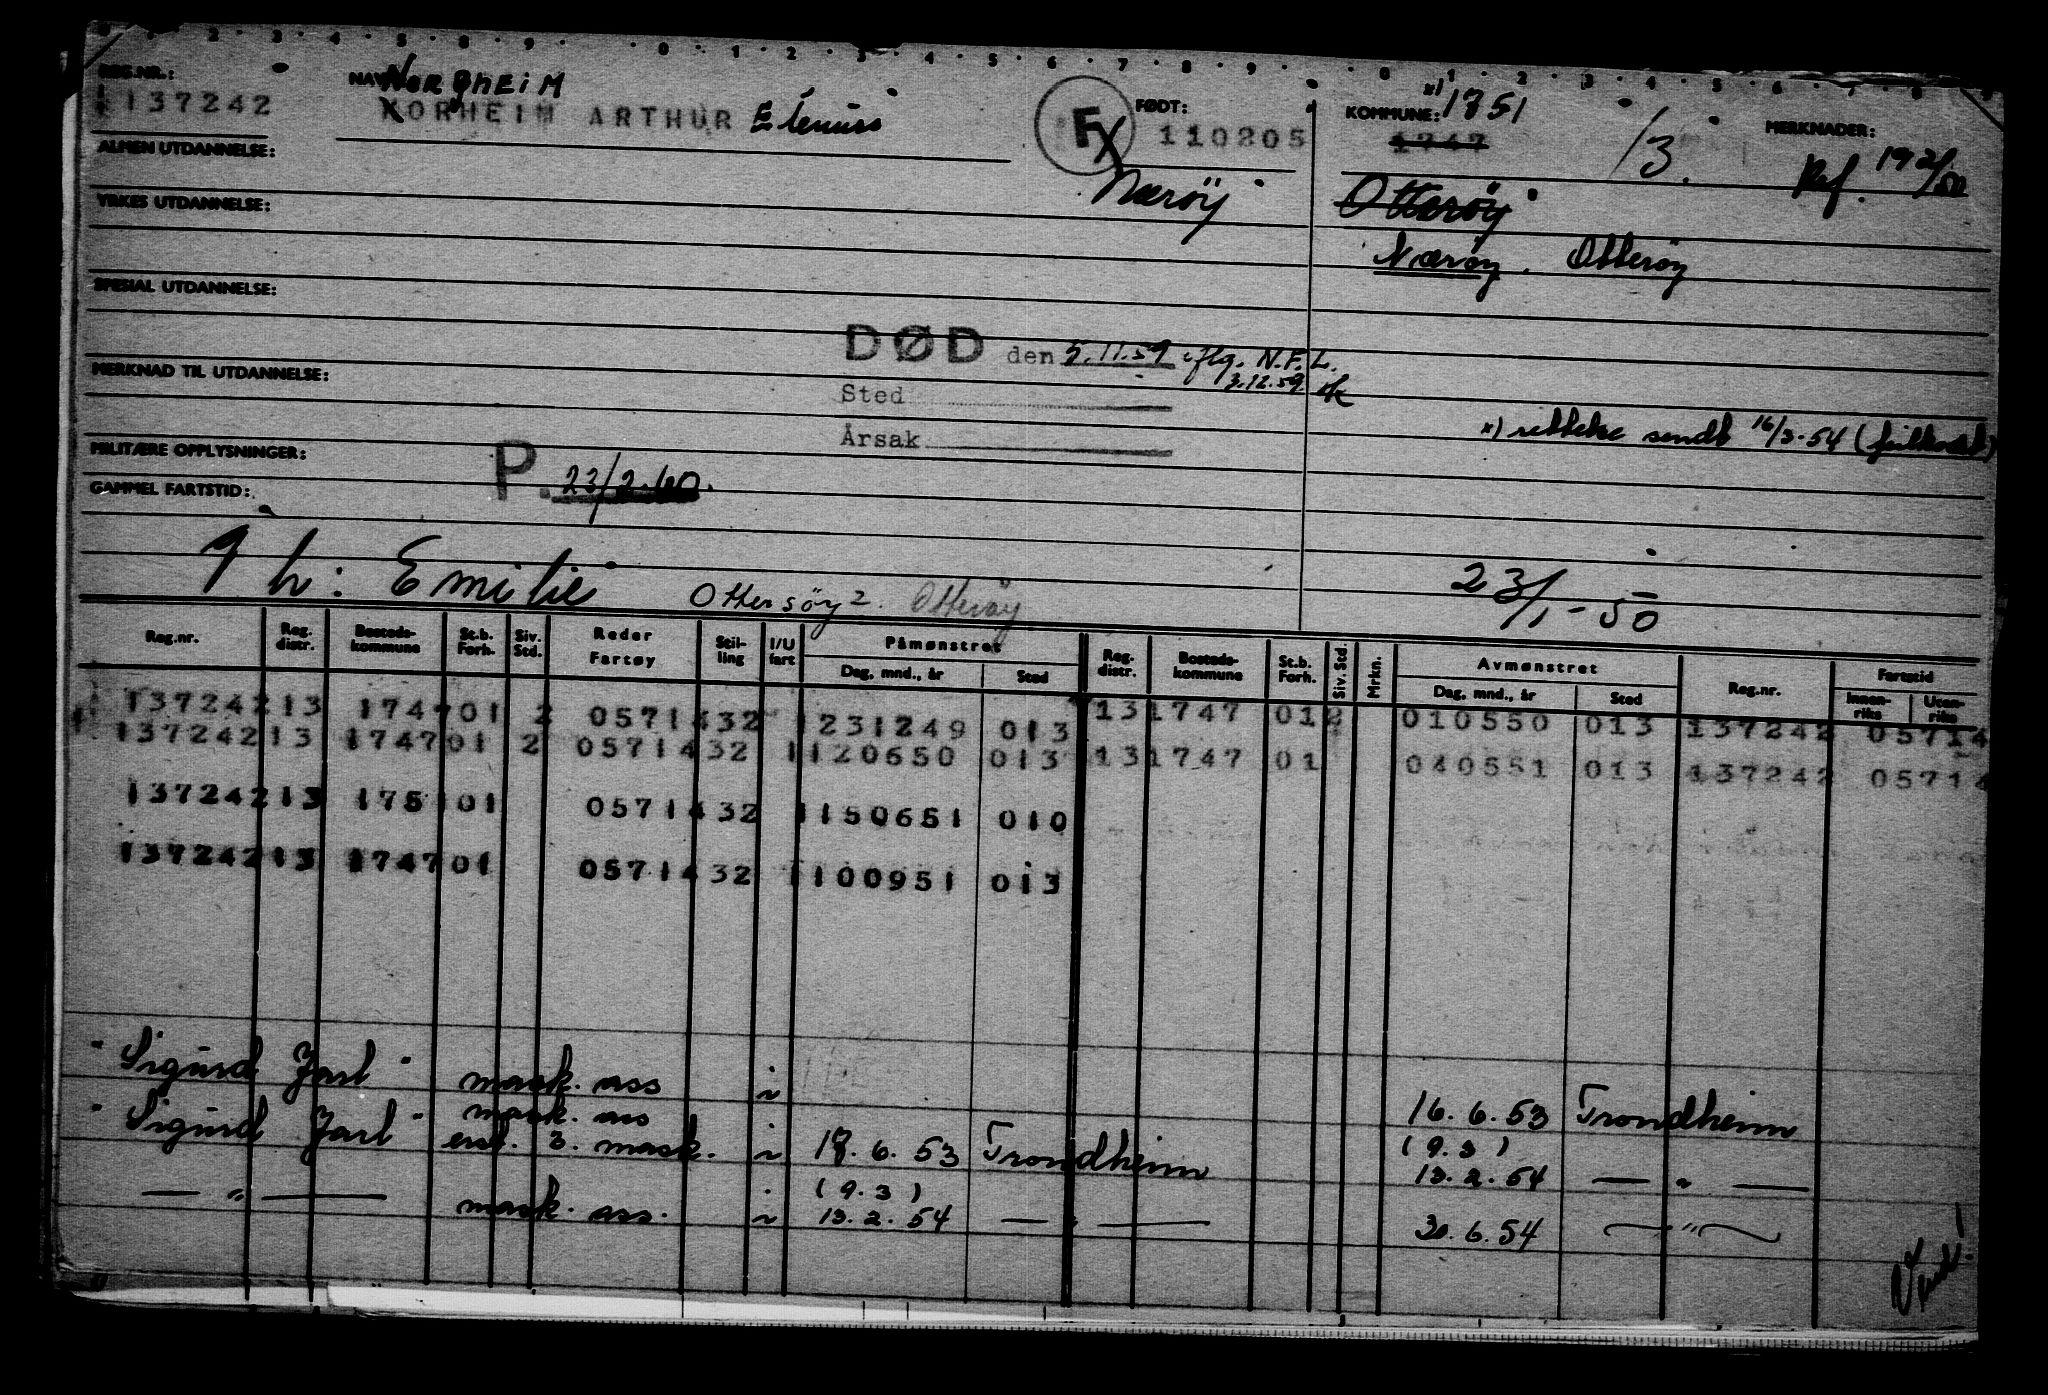 REG.NR.:
137242
NAVN
NORGHEIM
NORHEIM ARTHUR Elenius
FX
FØDT:
110205
Nærøy
KOMMUNE: x) 1751
1747
13.
MERKNADER:
Ref. 192/50
Otterøy
Nærøy. Otterøy
ALMEN UTDANNELSE:
YRKES UTDANNELSE:
SPESIAL UTDANNELSE:
DØD den 5.11.59 iflg. N.F.L.
3.12.59
MERKNAD TIL UTDANNELSE:
Sted
Årsak
x) rettelse sendt 16/3-54
MILITÆRE OPPLYSNINGER:
P. 23/2.60.
GAMMEL FARTSTID:
g h: Emilie Ottersøy 2. Otterøy
23/1-50
Reg.nr. Reg. distr. Bosteds-kommune St.b. Forh. Siv. Std. Reder Fartøy Stil-ling I/U fart Påmønstret Dag, mnd., år Sted Reg. distr. Bosteds-kommune St.b. Forh. Siv. Std. Mrkn. Avmønstret Dag, mnd., år Sted Reg.nr. Fartstid Innen-riks Uten-riks
137242 13 1747 01 2 0571432 1231249 013 13 1747 01 2 010550 013 137242 05714
137242 13 1747 01 2 0571432 1120650 013 13 1747 01 040551 013 137242 05714
137242 13 175 101 0571432 1150651 010
137242 13 1747 01 0571432 1100951 013
"Sigurd Jarl" mask. ass i 16.6.53 Trondheim
"Sigurd Jarl" mask. ass
erst. 3. mask. i 17.6.53 Trondheim (9.3) 13.2.54 — " —
— " — mask. ass. i (9.3) 13.2.54 — " — 30.6.54 — " —
Vend!